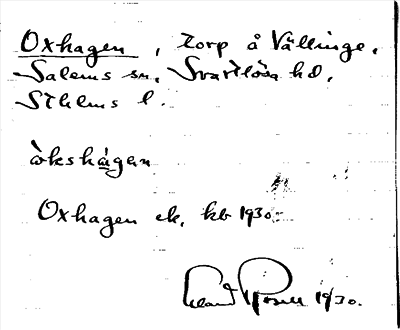 Oxhagen, torp å Vällinge,
Salems sn, Svartlösa hd,
Sthlms l.
òkshágen
Oxhagen ek, kb 1930.
1930.